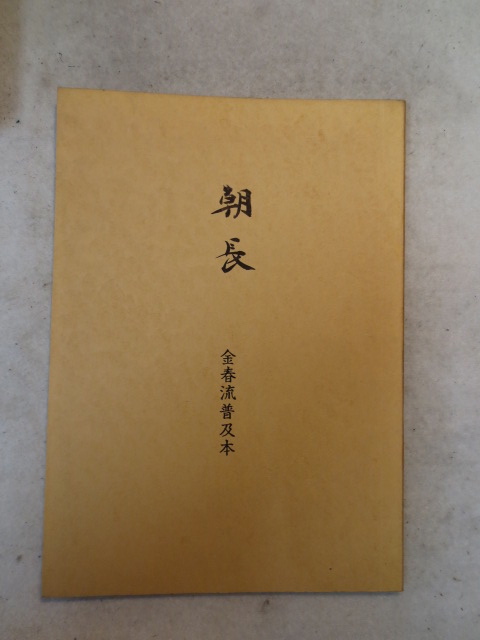 朝長
金春流普及本